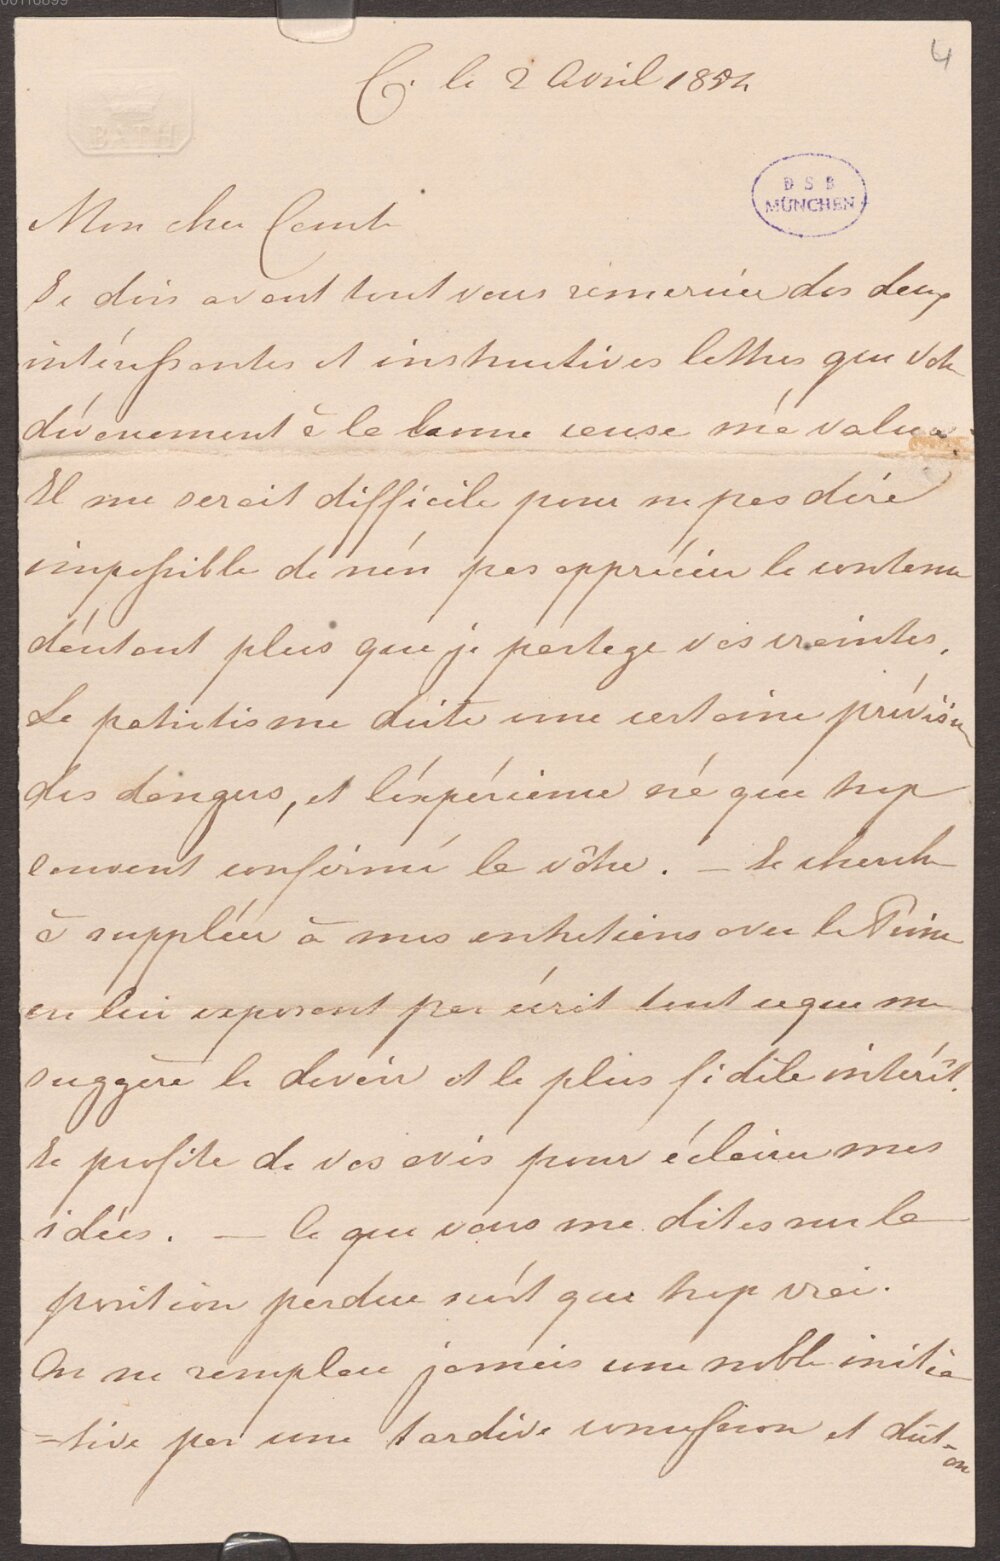 00110899
4
C. le 2 Avril 1854
BATH
D S B
MÜNCHEN
Mon cher Comte
Je dois avant tout vous remercier des deux
intéressantes et instructives lettres que votre
dévouement à la bonne cause m'a values.
Il me serait difficile pour ne pas dire
impossible de n'en pas apprécier le contenu
d'autant plus que je partage vos craintes.
Le patriotisme dicte une certaine prévision
des dangers, et l'expérience n'a que trop
souvent confirmé la vôtre. — Je cherche
à suppléer à mes entretiens avec le Prince
en lui exposant par écrit tout ce que me
suggère le devoir et le plus fidèle intérêt.
Je profite de vos avis pour éclairer mes
idées. — Ce que vous me dites sur la
position perdue n'est que trop vrai.
On ne remplace jamais une noble initia
=tive par une tardive concession et dût-
on